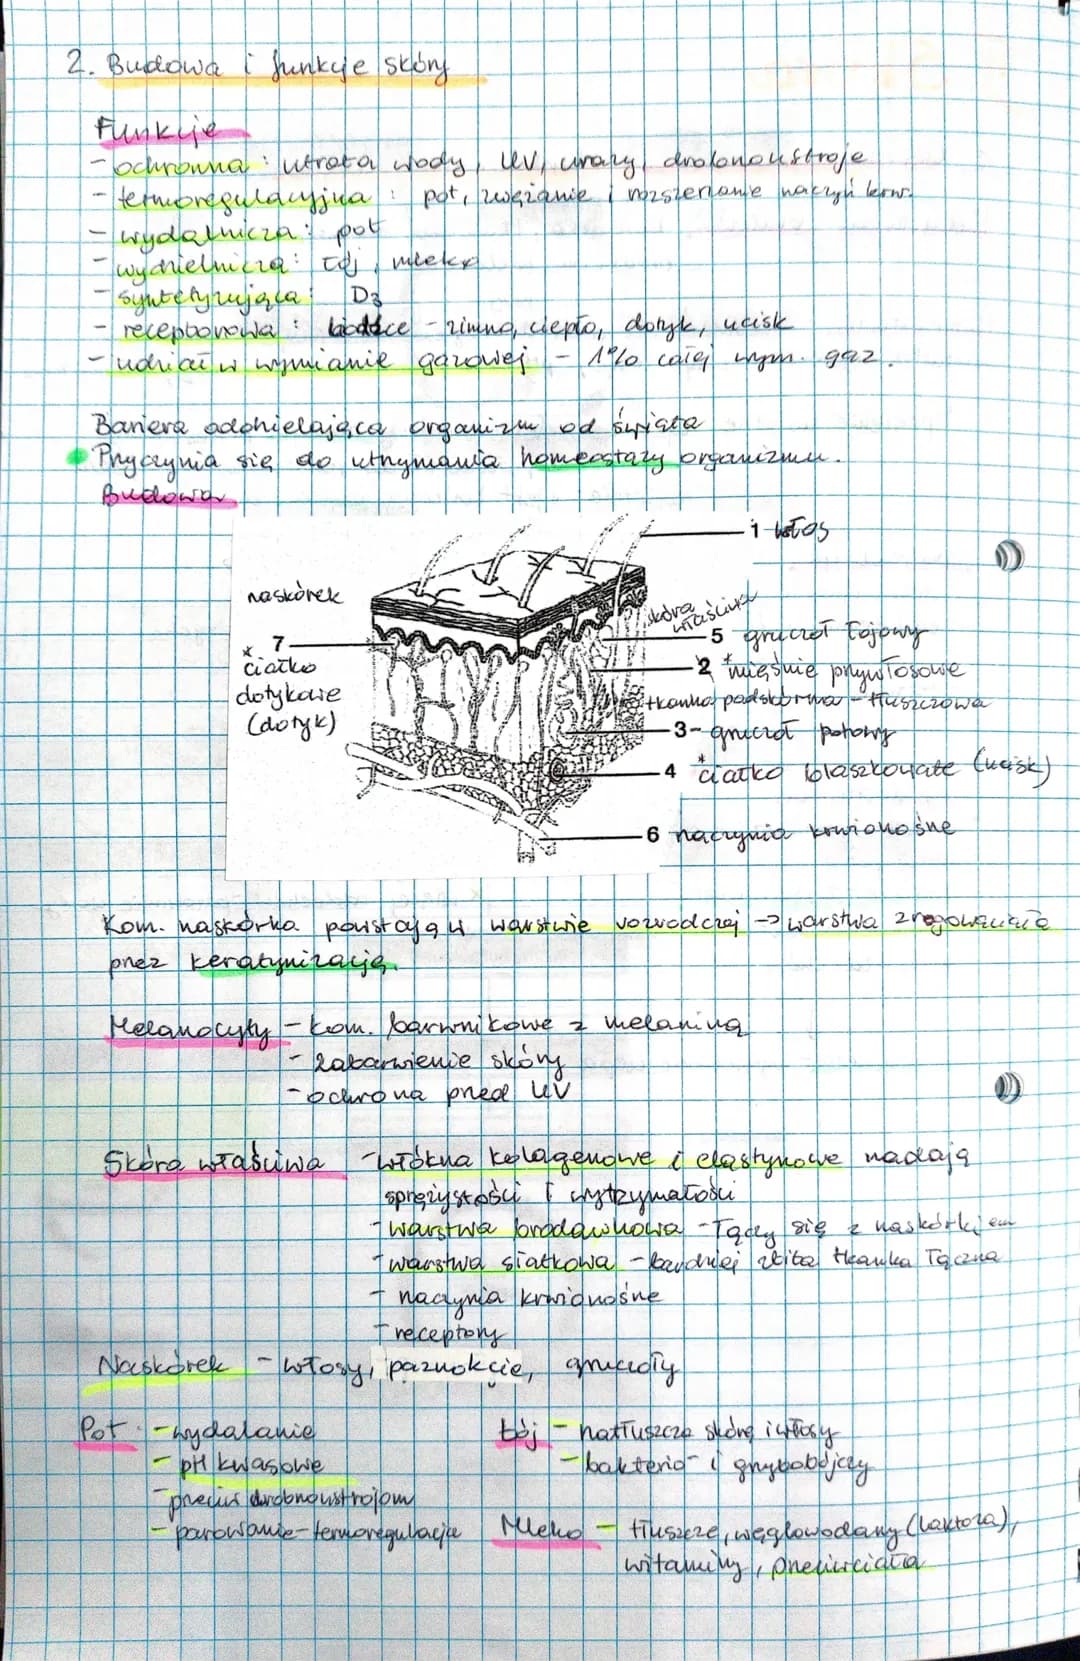 2. Budowa i funkcje skóry
Funkcje
- ochronna : utrata wody, UV, urazy, drobnoustroje
- termoregulacyjna : pot, zwężanie i rozszerzanie naczyń krw.
- wydalnicza : pot
- wydzielnicza : łój, mleko
- syntetyzująca : D3
- receptorowa : bodźce - zimno, ciepło, dotyk, ucisk
- udział w wymianie gazowej - 1% całej wym. gaz.
Bariera oddzielająca organizm od świata
Przyczynia się do utrzymania homeostazy organizmu.
Budowa
1 włos
naskórek
skóra właściwa
5 gruczoł łojowy
7
* ciałko dotykowe (dotyk)
2 mięśnie przywłosowe
tkanka podskórna - tłuszczowa
3 - gruczoł potowy
4 * ciałko blaszkowate (ucisk)
6 naczynia krwionośne
Kom. naskórka powstają w warstwie rozrodczej -> warstwa zrogowaciała
przez keratynizację.
Melanocyty - kom. barwnikowe z melaniną
- zabarwienie skóry
- ochrona przed UV
Skóra właściwa - włókna kolagenowe i elastynowe nadają
sprężystości i wytrzymałości
- warstwa brodawkowa - łączy się z naskórkiem
- warstwa siatkowa - bardziej zbita tkanka łączna
- naczynia krwionośne
- receptory
Naskórek - włosy, paznokcie, gruczoły
Pot - wydalanie
- pH kwasowe
- przeciw drobnoustrojom
- parowanie - termoregulacja
Łój - natłuszcza skórę i włosy
- bakterio- i grzybobójczy
Mleko - tłuszcze, węglowodany (laktoza),
witaminy, przeciwciała